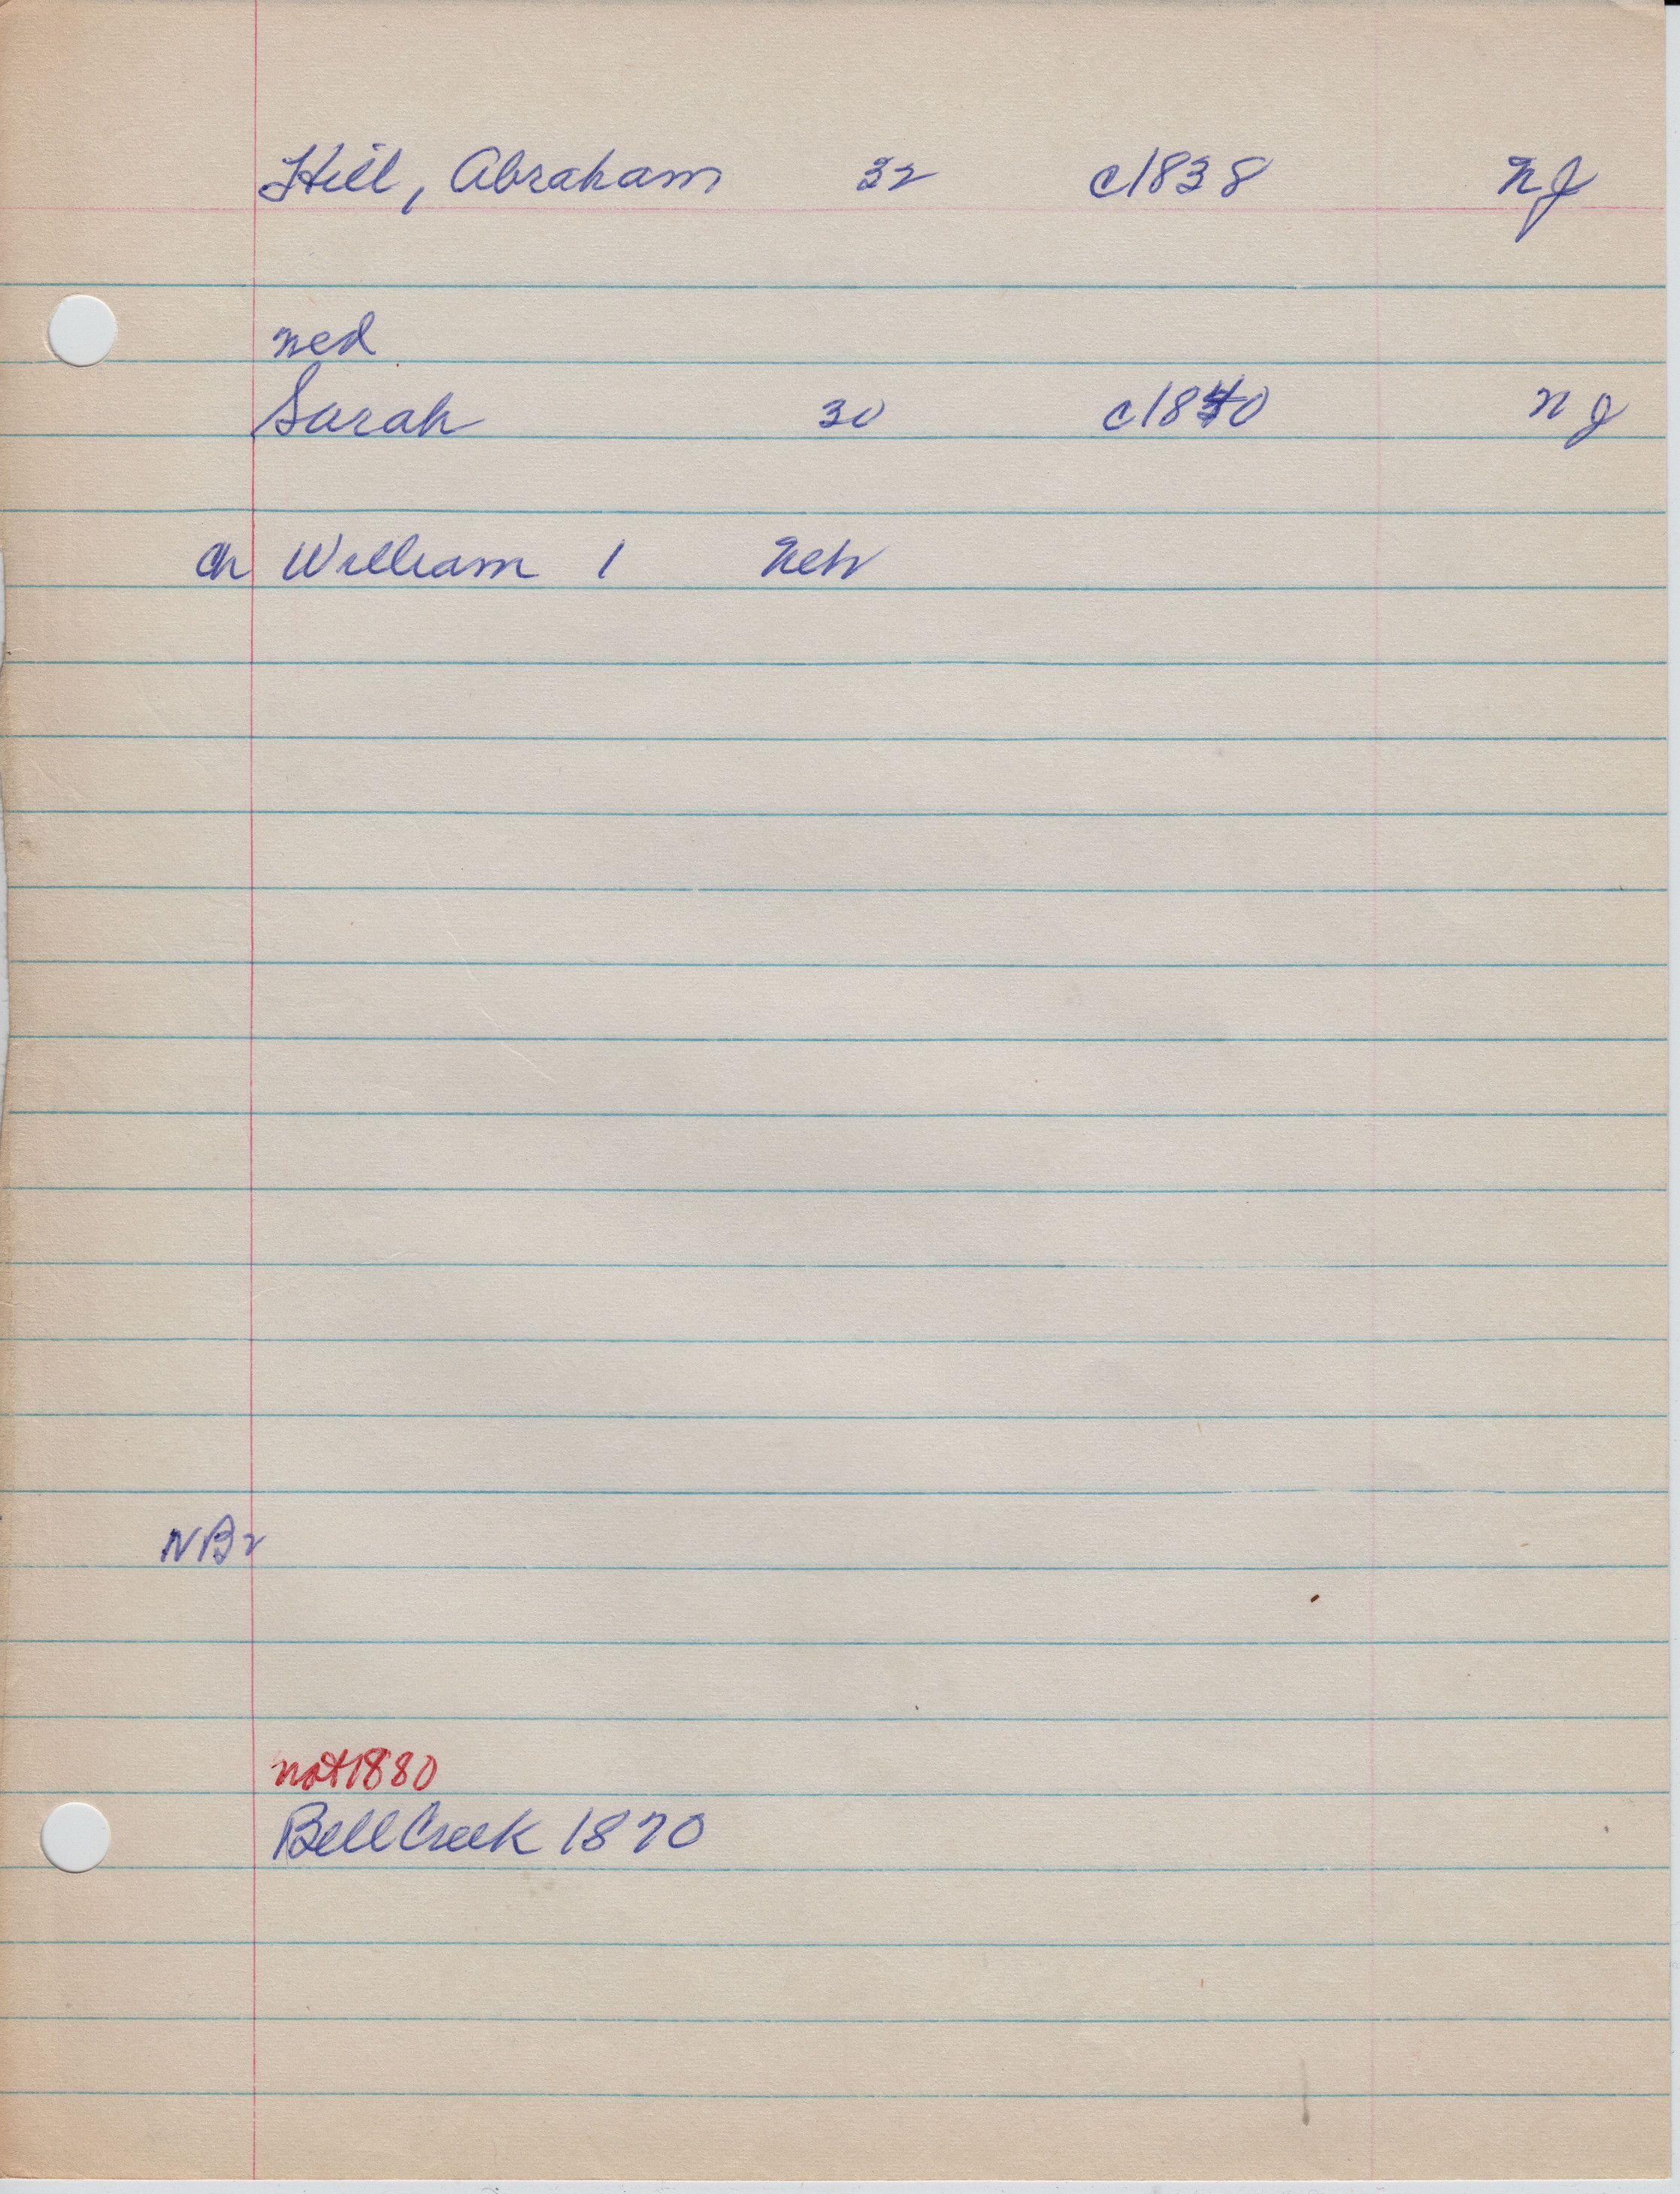 Hill, Abraham 32 c1838 NJ
med
Sarah 30 c1840 NJ
Ch William 1 Neb
NB2
not 1880
Bell Creek 1870